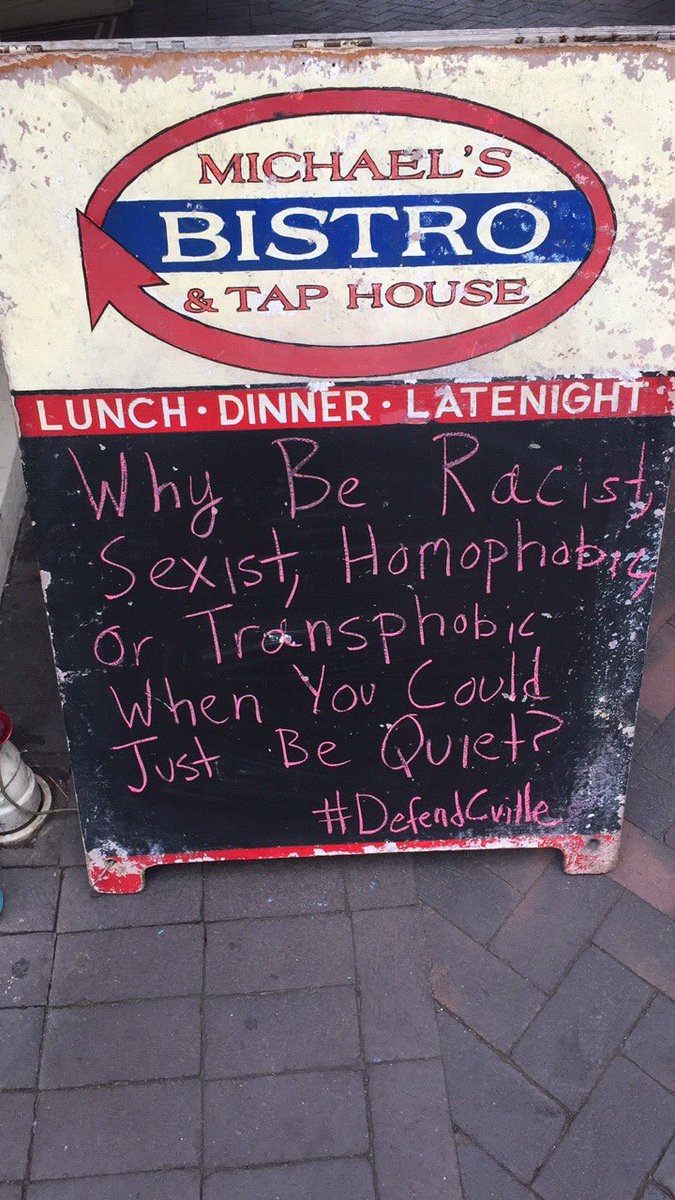 MICHAEL'S
BISTRO
& TAP HOUSE
LUNCH · DINNER · LATENIGHT
Why Be Racist,
Sexist, Homophobic,
or Transphobic
When You Could
Just Be Quiet?
#DefendCville